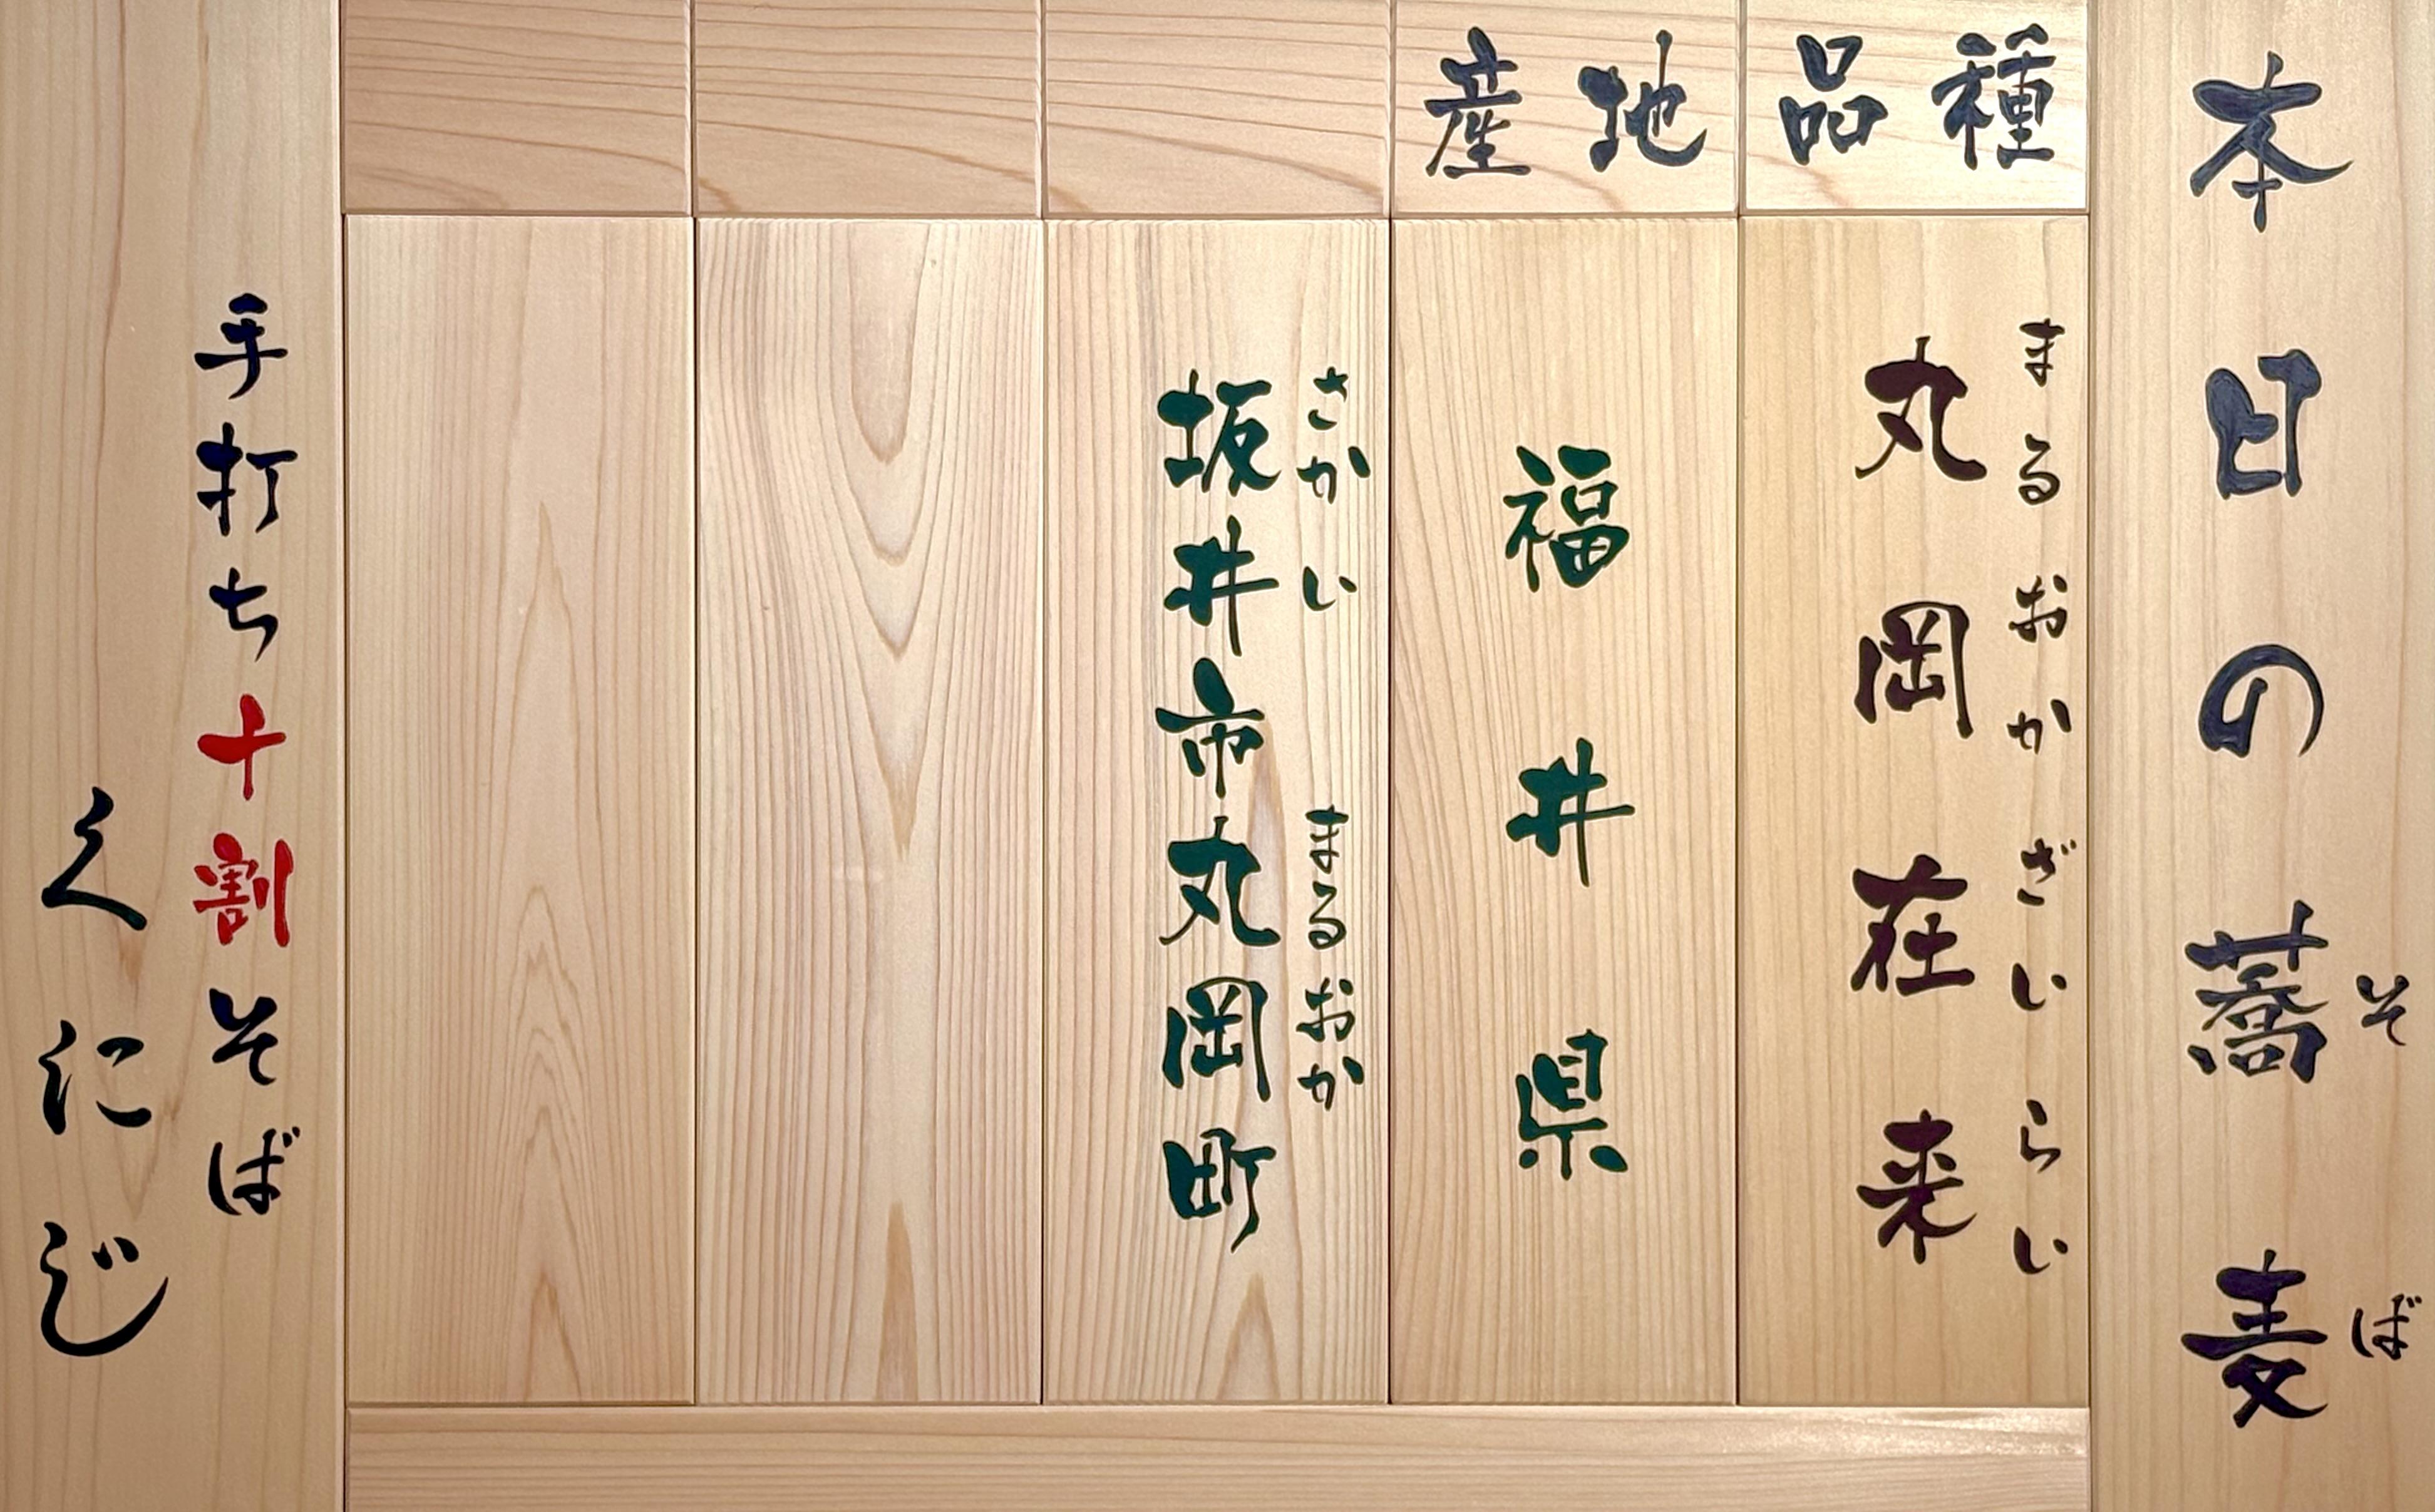 本日の蕎麦
そば
品種
丸岡在来
まるおかざいらい
産地
福井県
坂井市丸岡町
さかい まるおか
手打ち十割そば
くにじ